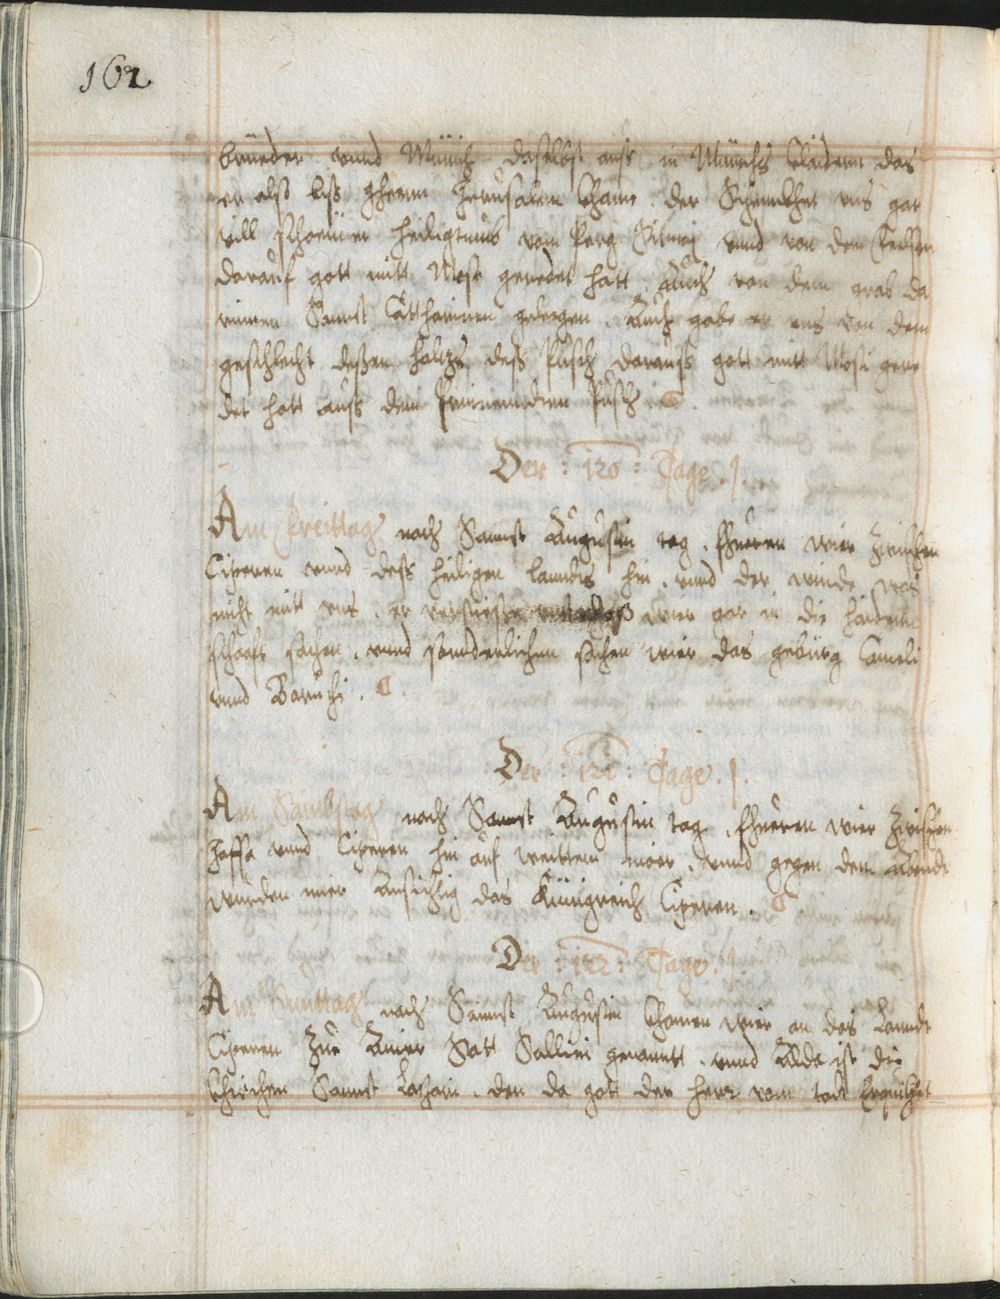 162
brüeder vnnd Münich daselbst auss in Münichs klaidern das
er also biss ghenn Jherusalem khame. der Schennkhet vns gar
vill schoenner heiligtumb vom Perg Sinai vnnd von dem Velssen
darauf gott mitt Mose geredet hatt. Auch von dem grab da
rinnen Sannt Catharinen gelegen. Auch gabe er vns von dem
geschlecht dessen holtzs dess Pusch darauss gott mitt Mosi gere
det hatt auss dem Prinnenden Pusch.
Der : 120 : Tage .
Am Freittag nach Sannt Augustin tag. fhueren wier zwischen
Ciperen vnnd dess heiligen lanndts hin. vnnd der winde was
nicht mitt vns. er wier gar in die haiden
schafft sahen. vnnd sonnderlichen sahen wier das gebürg Carmeli
vnnd Baruthi.
Der : 121 : Tage .
Am Sambstag nach Sannt Augustin tag. fhueren wier zwischen
Jaffa vnnd Ciperen hin auf weittem moer. vnnd gegen dem Abende
wurden mier Ansichtig das Künigreich Ciperen.
Der : 122 : Tage .
Am Sunttag nach Sannt Augustin khamen wier an das Lannde
Ciperen zue Ainer Statt Sallini genanntt. vnnd Alda ist die
khirchen Sannt Lazari. den da gott der herr vom todt Erquikhet